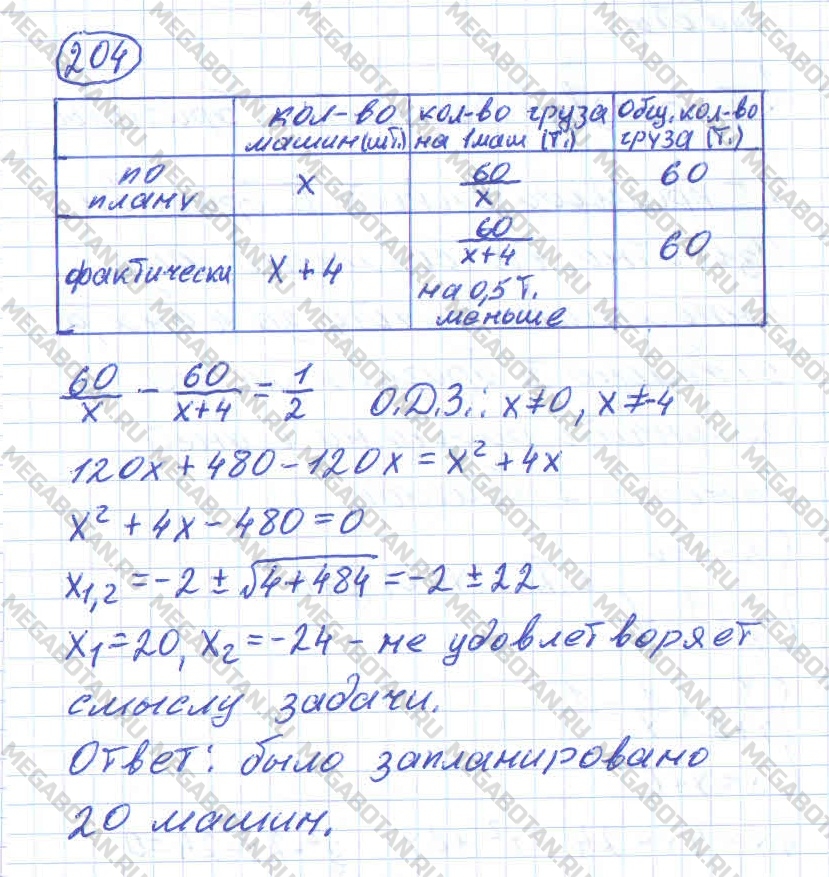 204
кол-во машин (шт.) кол-во груза на 1 маш (т.) Общ. кол-во груза (т.)
по плану x 60/x 60
фактически x+4 60/(x+4) на 0,5 т. меньше 60
60/x - 60/(x+4) = 1/2 О.Д.З.: x≠0, x≠-4
120x + 480 - 120x = x² + 4x
x² + 4x - 480 = 0
x₁,₂ = -2 ± √4+484 = -2 ± 22
x₁=20, x₂=-24 - не удовлетворяет
смыслу задачи.
Ответ: было запланировано
20 машин.
MEGABOTAN.RU